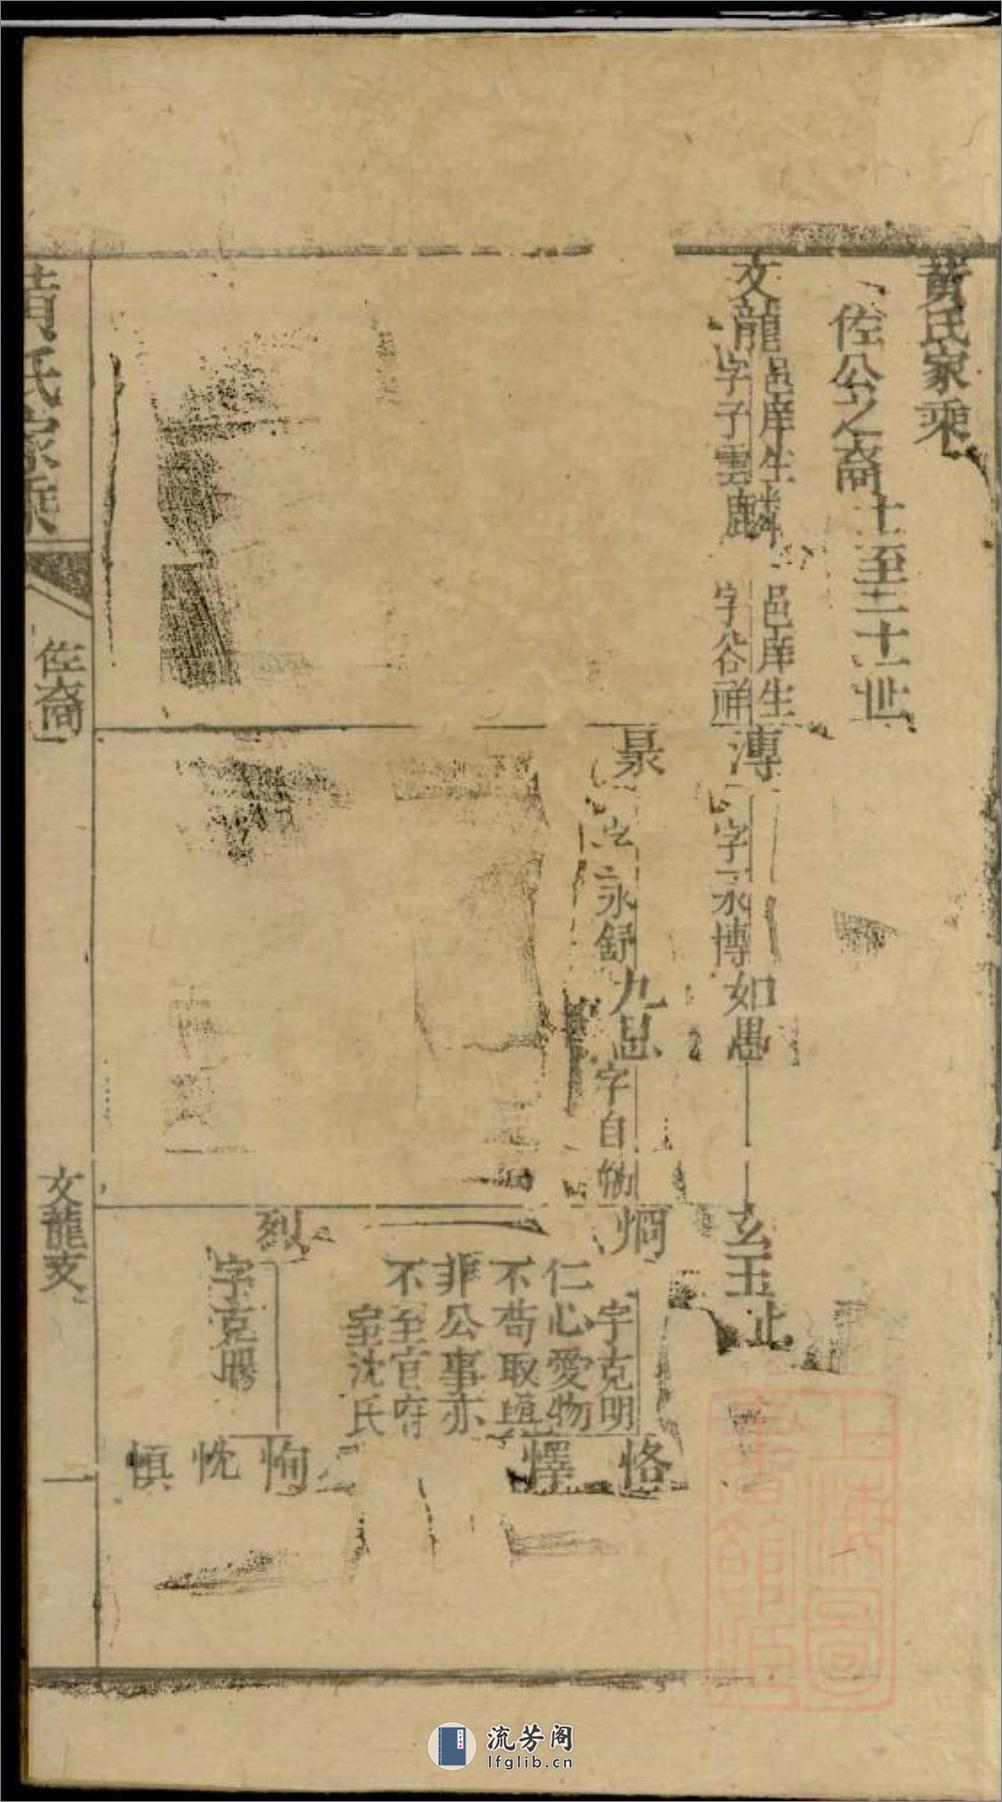 黃氏家乘
佐公之裔十至二十一世
文龍 邑庠生 字子雲
麟 邑庠生 字谷祥
漙 字永博
如愚
玄玉 止
景 字永舒
九思 字自
炯 字克明
仁心愛物
不苟取與
非公事亦
不至官府
室沈氏
恪
懌
烈 字克
恂
忱
慎
黃氏家乘
佐裔
文龍支
一
上海圖書館藏
流芳阁
lfglib.cn